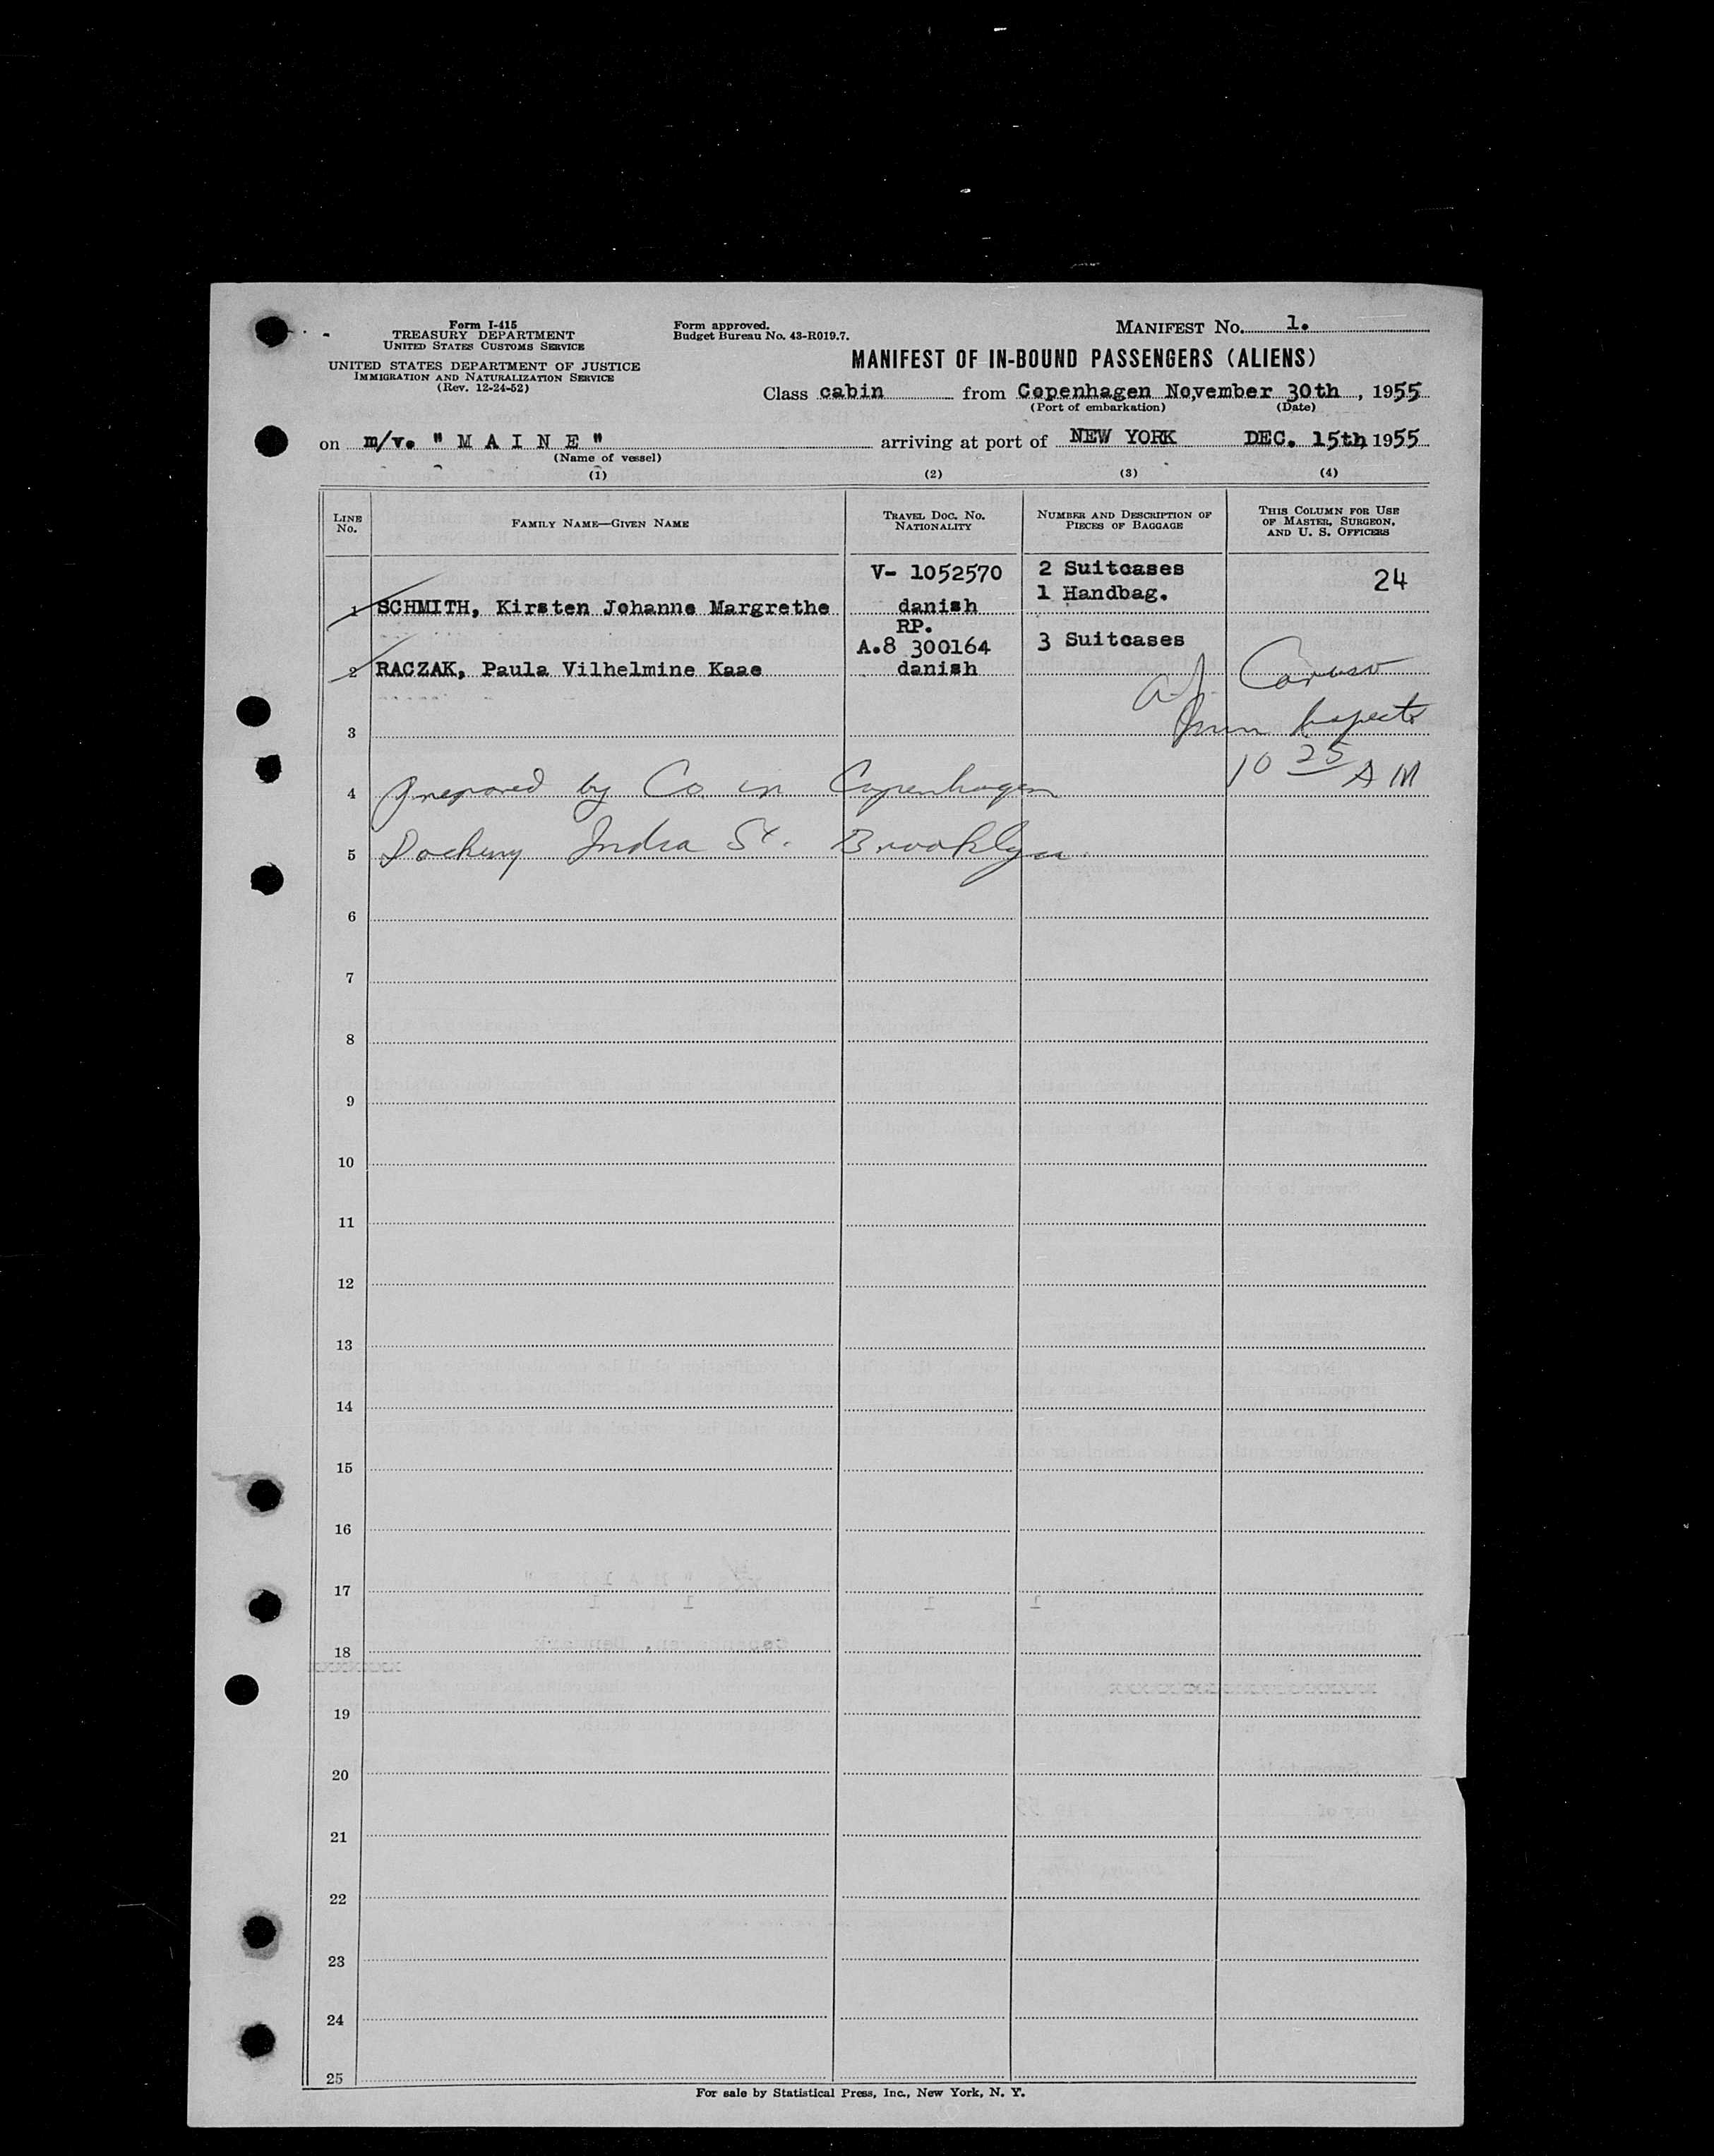 Form I-415
TREASURY DEPARTMENT
UNITED STATES CUSTOMS SERVICE
UNITED STATES DEPARTMENT OF JUSTICE
IMMIGRATION AND NATURALIZATION SERVICE
(Rev. 12-24-52)
Form approved.
Budget Bureau No. 43-R019.7.
MANIFEST No. 1.
MANIFEST OF IN-BOUND PASSENGERS (ALIENS)
Class cabin from Copenhagen November 30th, 1955
(Port of embarkation) (Date)
on m/v. " M A I N E " arriving at port of NEW YORK DEC. 15th 1955
(Name of vessel)
(1) (2) (3) (4)
LINE No. FAMILY NAME—GIVEN NAME TRAVEL DOC. No. NATIONALITY NUMBER AND DESCRIPTION OF PIECES OF BAGGAGE THIS COLUMN FOR USE OF MASTER, SURGEON, AND U. S. OFFICERS
V- 1052570 2 Suitcases 24
1 Handbag.
1 SCHMITH, Kirsten Johanne Margrethe danish
RP.
A.8 300164 3 Suitcases
2 RACZAK, Paula Vilhelmine Kaae danish
A.J. Caruso
Imm Inspector
3
10 25 AM
4 Prepared by Co. in Copenhagen
5 Docking India St. Brooklyn
6
7
8
9
10
11
12
13
14
15
16
17
18
19
20
21
22
23
24
25
For sale by Statistical Press, Inc., New York, N. Y.